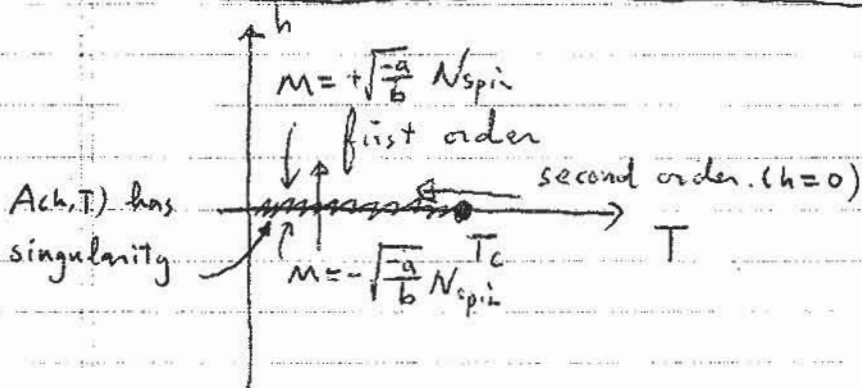 h
M = +√(-a/b) Nspin
first order
second order. (h=0)
A(h,T) has
singularity
Tc
T
M = -√(-a/b) Nspin